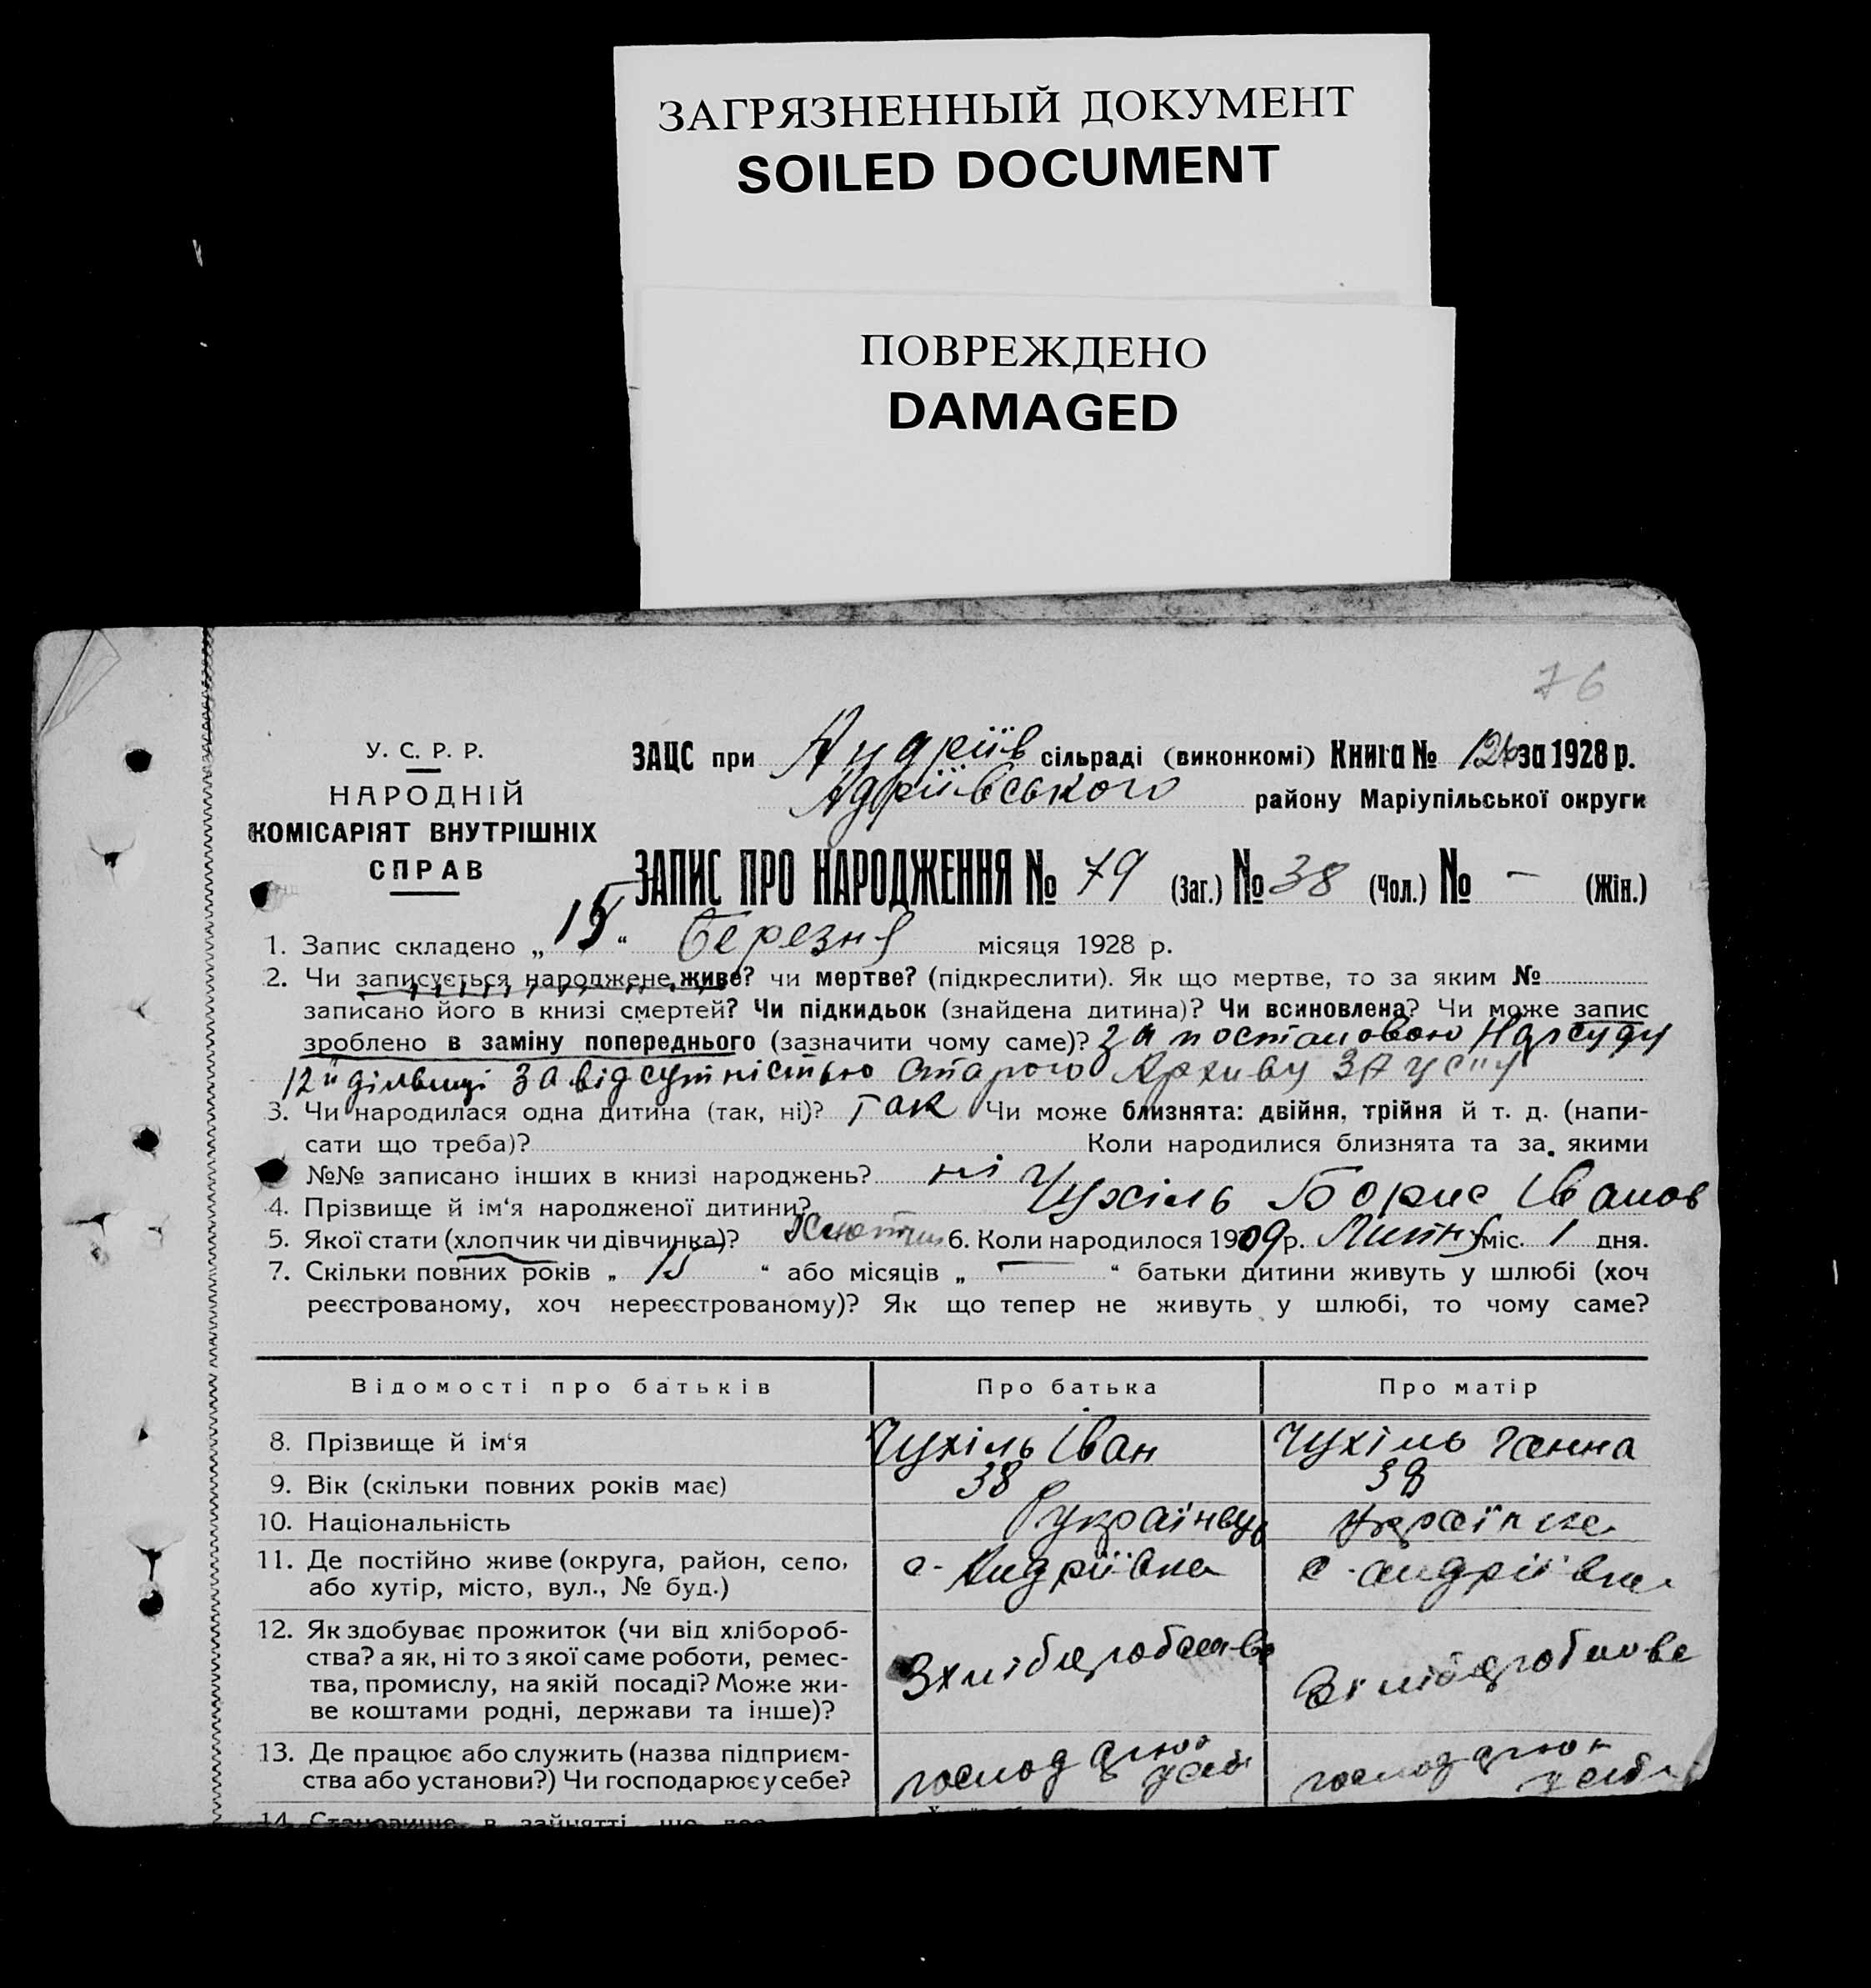 ЗАГРЯЗНЕННЫЙ ДОКУМЕНТ
SOILED DOCUMENT
ПОВРЕЖДЕНО
DAMAGED
76
У. С. Р. Р.
НАРОДНІЙ
КОМІСАРІЯТ ВНУТРІШНІХ
СПРАВ
ЗАЦС при Андріїв сільраді (виконкомі) Книга № 126 за 1928 р.
Адріївського району Маріупільської округи
ЗАПИС ПРО НАРОДЖЕННЯ № 79 (Заг.) № 38 (Чол.) № - (Жін.)
1. Запис складено „15“ березня місяця 1928 р.
2. Чи записується народжене живе? чи мертве? (підкреслити). Як що мертве, то за яким №
записано його в книзі смертей? Чи підкидьок (знайдена дитина)? Чи всиновлена? Чи може запис
зроблено в заміну попереднього (зазначити чому саме)? за постановою Нарсуду
12ї дільниці за відсутністью старого Архиву ЗАЦСу
3. Чи народилася одна дитина (так, ні)? так Чи може близнята: двійня, трійня й т. д. (напи-
сати що треба)? Коли народилися близнята та за якими
№№ записано інших в книзі народжень? ні
4. Прізвище й ім‘я народженої дитини? Чухіль Борис Іванов
5. Якої стати (хлопчик чи дівчинка)? 6. Коли народилося 1909 р. Липня міс. 1 дня.
7. Скільки повних років „ 15 “ або місяців „ — “ батьки дитини живуть у шлюбі (хоч
реєстрованому, хоч нереєстрованому)? Як що тепер не живуть у шлюбі, то чому саме?
Відомості про батьків Про батька Про матір
8. Прізвище й ім‘я Чухіль Іван Чухіль Ганна
9. Вік (скільки повних років має) 38 38
10. Національність українець Українка
11. Де постійно живе (округа, район, село, с. Андріївка с. Андріївка
або хутір, місто, вул., № буд.)
12. Як здобуває прожиток (чи від хлібороб-
ства? а як, ні то з якої саме роботи, ремес-
тва, промислу, на якій посаді? Може жи-
ве коштами родні, держави та інше)?
13. Де працює або служить (назва підприєм-
ства або установи?) Чи господарює у себе?
14. Становище в зайнятті, що